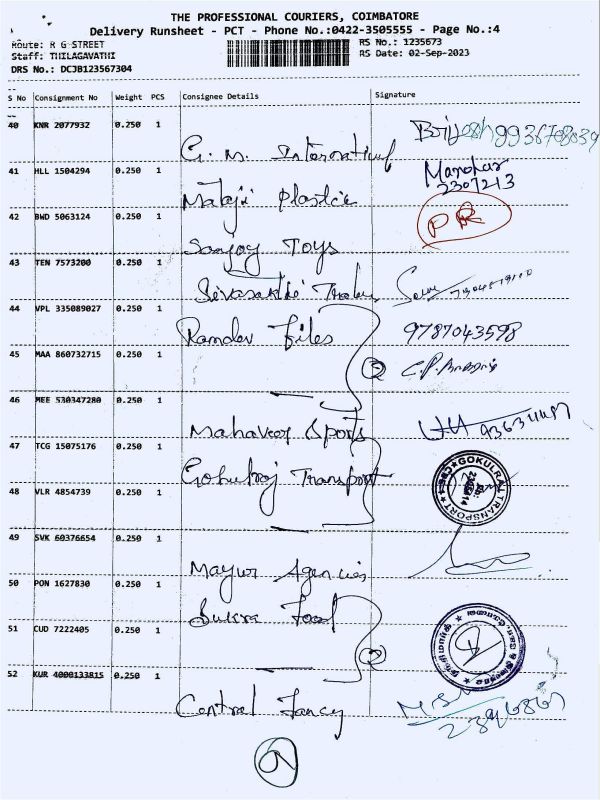 THE PROFESSIONAL COURIERS, COIMBATORE
Delivery Runsheet - PCT - Phone No.:0422-3505555 - Page No.:4
Route: R G STREET
RS No.: 1235673
Staff: THILAGAVATHI
RS Date: 02-Sep-2023
DRS No.: DCJB123567304
S No Consignment No Weight PCS Consignee Details Signature
40 KNR 2077932 0.250 1
G. M. International
41 HLL 1504294 0.250 1
Manohar
2307213
Mataji Plastic
42 BWD 5063124 0.250 1
PR
Sanjoy Toys
43 TEN 7573200 0.250 1
Sivasakthi
44 VPL 335089027 0.250 1
Ramdev Files 9787043598
45 MAA 860732715 0.250 1
2
46 MEE 530347280 0.250 1
Mahaveer Sports
47 TCG 15075176 0.250 1
Gokulraj Transport
GOKULRAJ TRANSPORT
48 VLR 4854739 0.250 1
49 SVK 60376654 0.250 1
Mayur Agencies
50 PON 1627830 0.250 1
Sukra Food
51 CUD 7222405 0.250 1
2
52 KUR 4000133815 0.250 1
Central Fancy